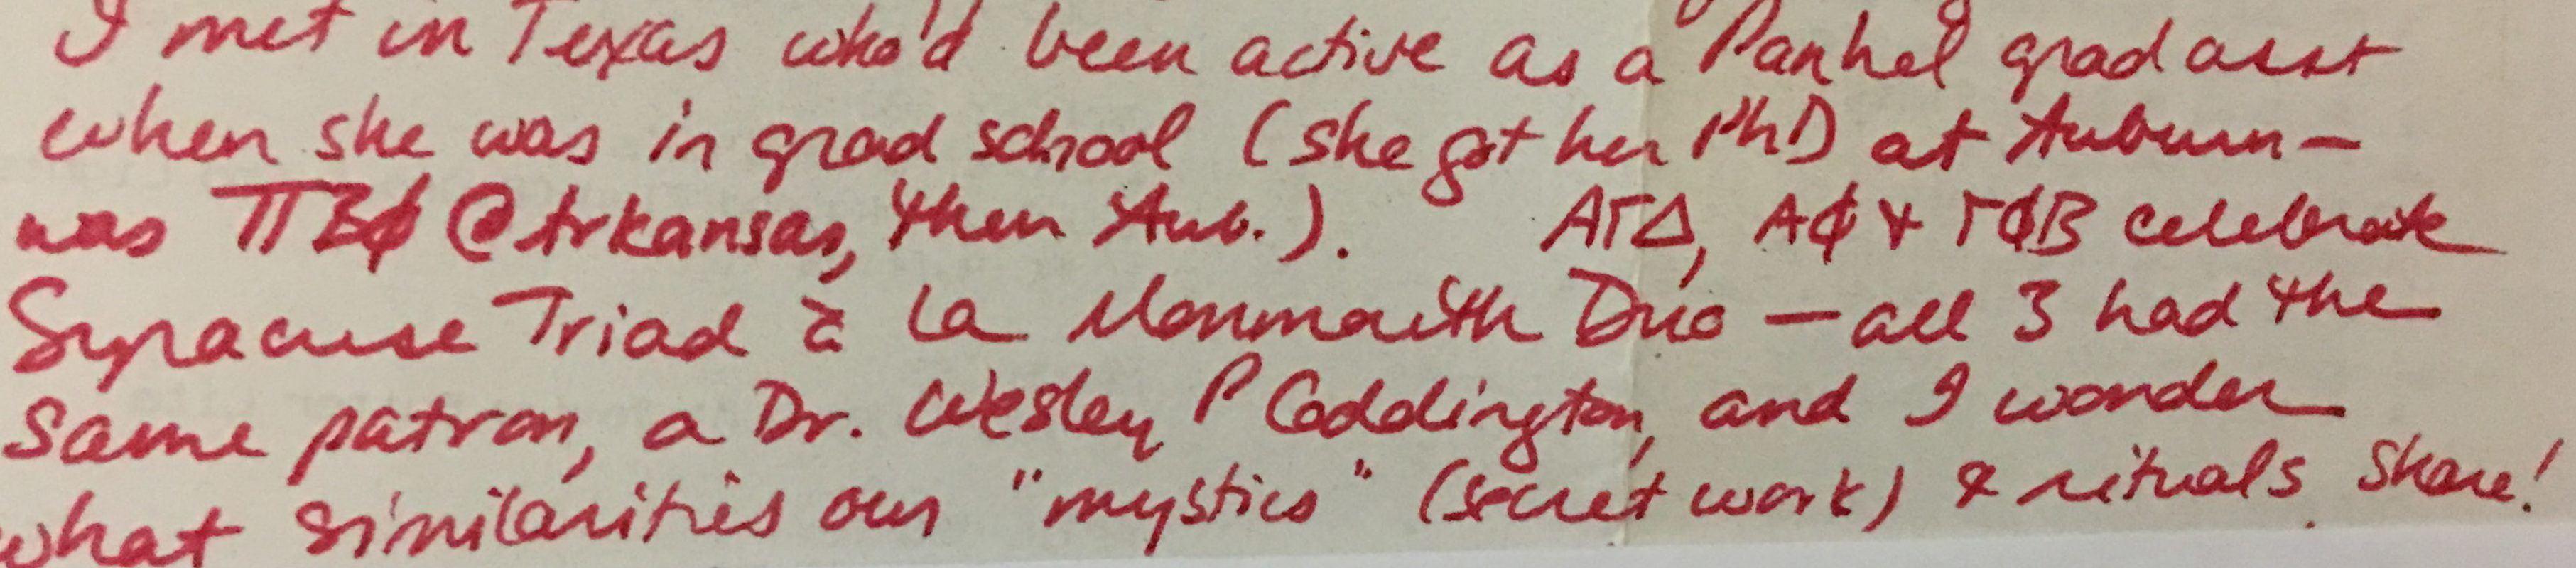 I met in Texas who'd been active as a Panhel grad asst
when she was in grad school (she got her PhD at Auburn —
was ΠΒΦ @ Arkansas, then Aub.). ΑΓΔ, ΑΦ & ΓΦΒ celebrate
Syracuse Triad à la Monmouth Duo — all 3 had the
same patron, a Dr. Wesley P Coddington, and I wonder
what similarities our "mystics" (secret work) & rituals share!